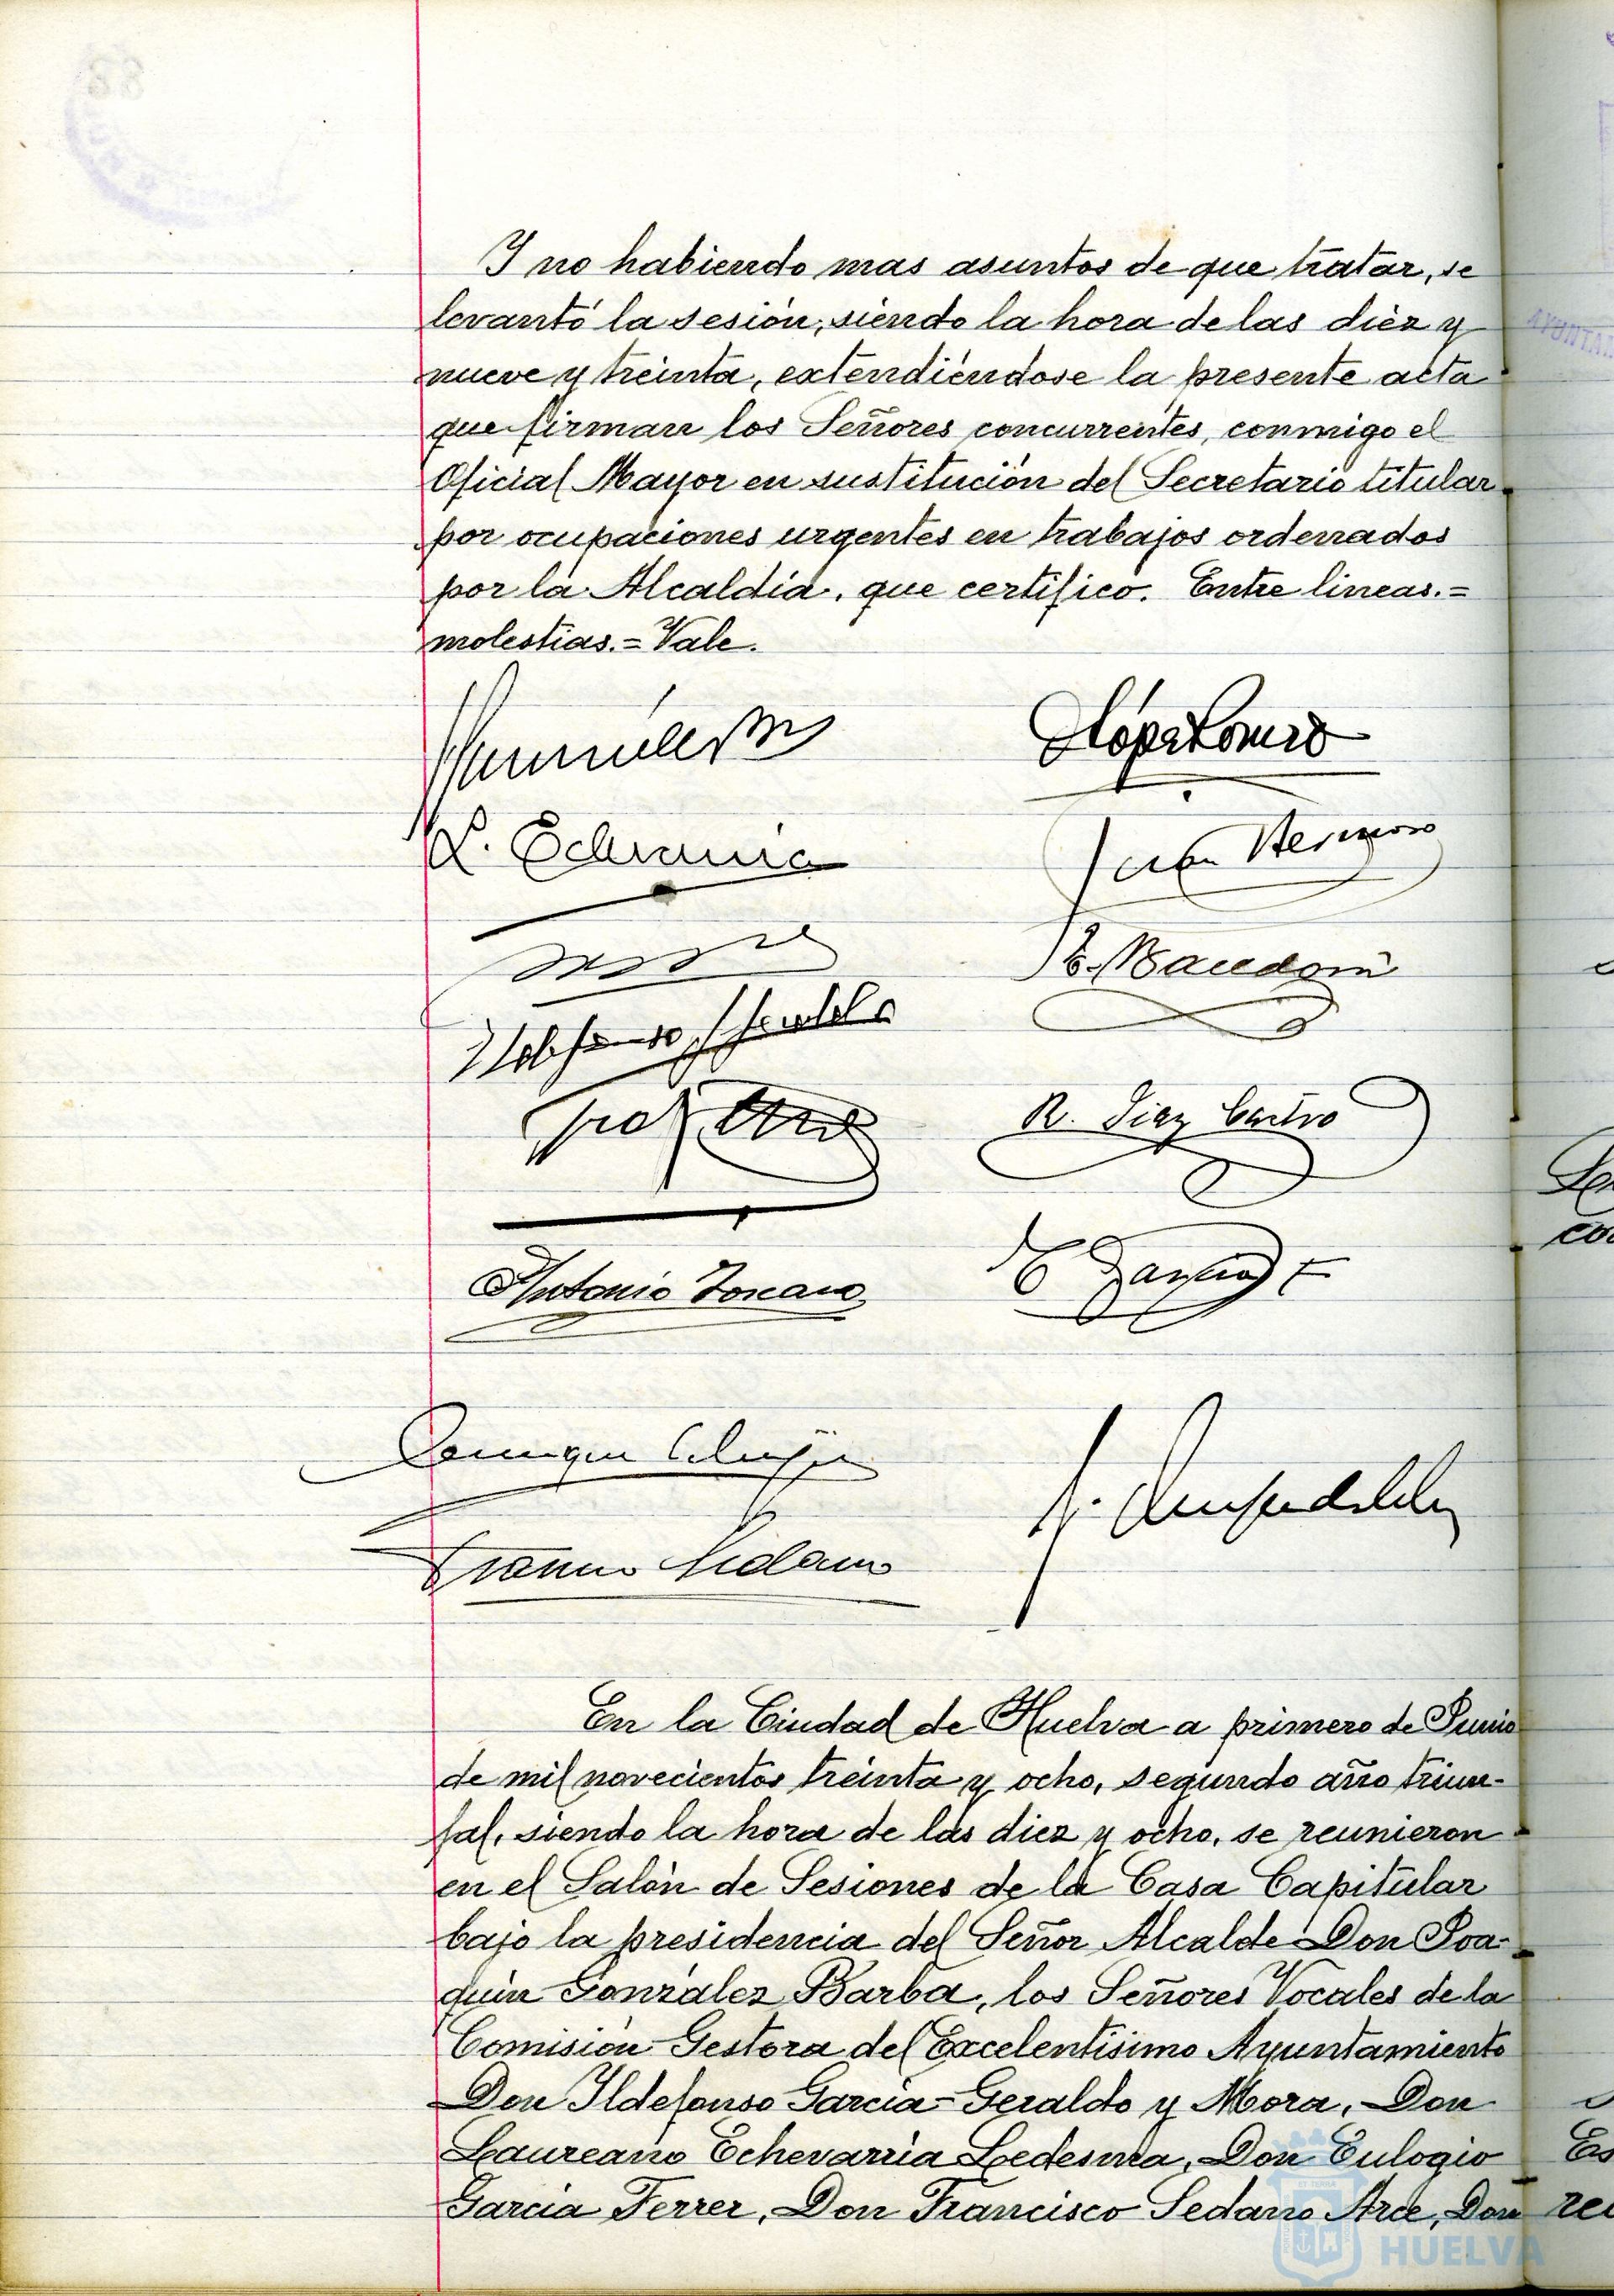 Y no habiendo mas asuntos de que tratar, se
levantó la sesión, siendo la hora de las diez y
nueve y treinta, extendiéndose la presente acta
que firman los Señores concurrentes, conmigo el
Oficial Mayor en sustitución del Secretario titular
por ocupaciones urgentes en trabajos ordenados
por la Alcaldia, que certifico. Entre lineas.=
molestias.= Vale.
L. Echevarria
Juan Hermoso
R. Diaz Castro
Antonio Toscano
E Garcia F
Francisco Sedano
En la Ciudad de Huelva a primero de Junio
de mil novecientos treinta y ocho, segundo año triun-
fal, siendo la hora de las diez y ocho, se reunieron
en el Salón de Sesiones de la Casa Capitular
bajo la presidencia del Señor Alcalde Don Joa-
quin González Barba, los Señores Vocales de la
Comisión Gestora del Excelentisimo Ayuntamiento
Don Ildefonso Garcia-Geraldo y Mora, Don
Laureano Echevarria Ledesma, Don Eulogio
Garcia Ferrer, Don Francisco Sedano Arce, Don
HUELVA